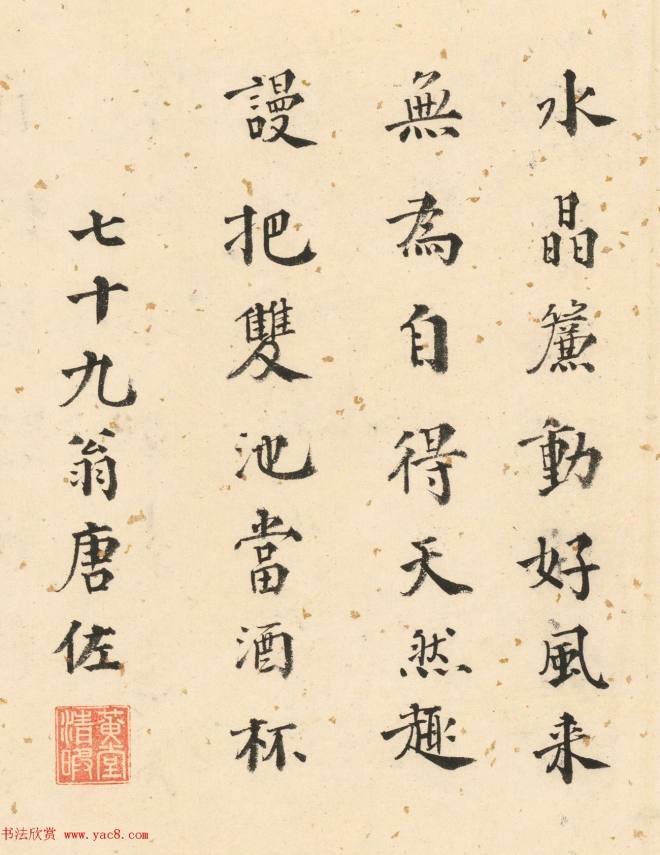 水晶簾動好風来
無為自得天然趣
謾把雙池當酒杯
七十九翁唐佐
黄堂
清暇
书法欣赏 www.yac8.com